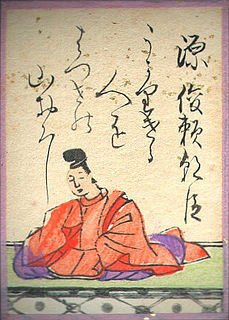 源俊頼朝臣
うかりける
人を
はつせの
山おろし